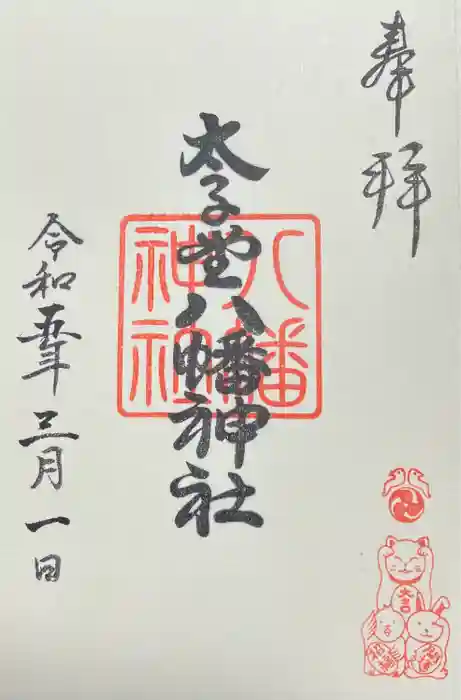 奉拝
太子堂八幡神社
八幡
神社
令和五年三月一日